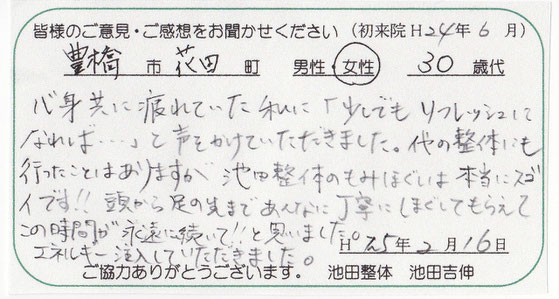 皆様のご意見・ご感想をお聞かせください（初来院 H24年6月）
豊橋市 花田町 男性・女性 30歳代
心身共に疲れていた私に「少しでもリフレッシュに
なれば……」と声をかけていただきました。他の整体にも
行ったことはありますが 池田整体のもみほぐしは本当にスゴ
イです!! 頭から足の先まであんなに丁寧にほぐしてもらえて
この時間が永遠に続いて!!と思いました。
エネルギー注入していただきました。
H25年2月16日
ご協力ありがとうございます。 池田整体 池田吉伸